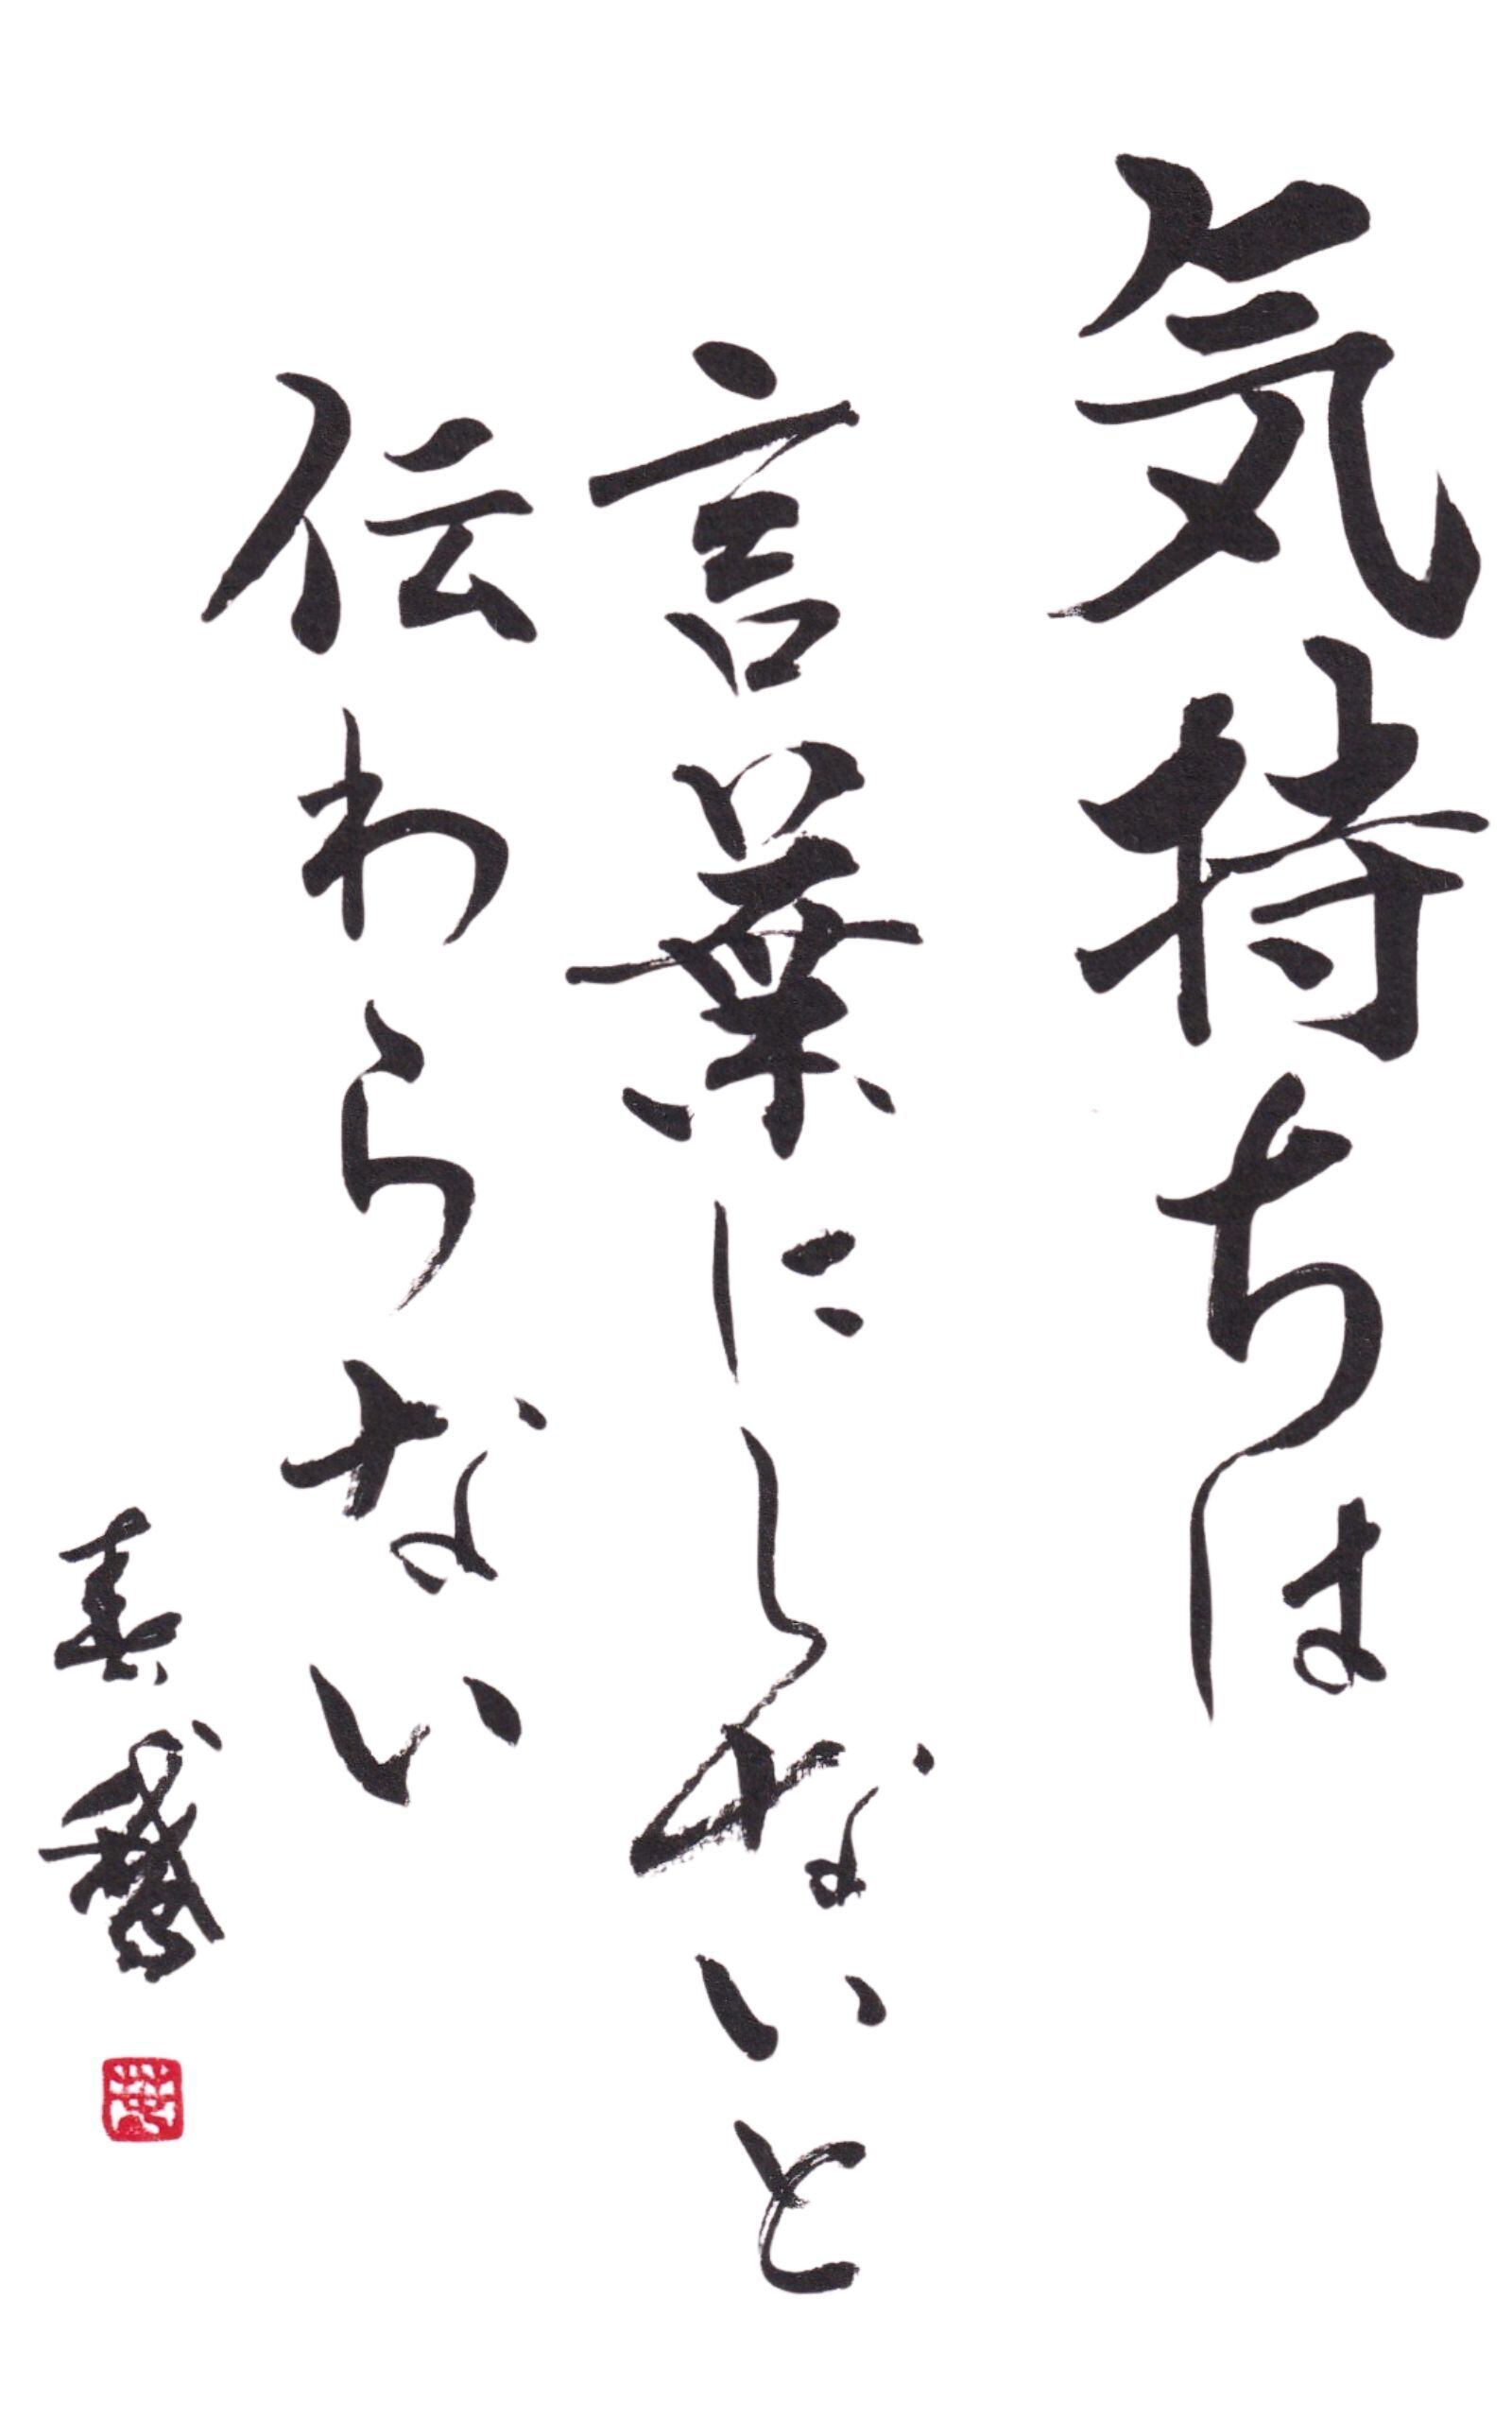 気持ちは
言葉にしないと
伝わらない